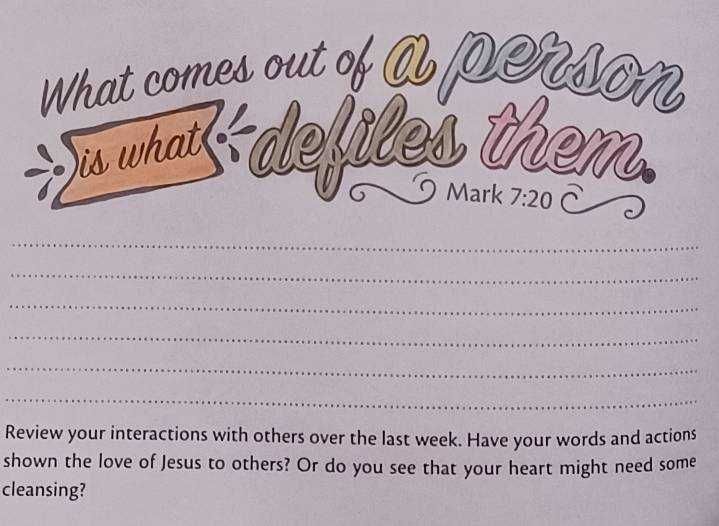 What comes out of a person
is what defiles them.
Mark 7:20
Review your interactions with others over the last week. Have your words and actions
shown the love of Jesus to others? Or do you see that your heart might need some
cleansing?